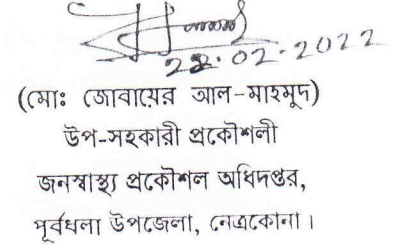 22.02.2022
(মোঃ জোবায়ের আল-মাহমুদ)
উপ-সহকারী প্রকৌশলী
জনস্বাস্থ্য প্রকৌশল অধিদপ্তর,
পূর্বধলা উপজেলা, নেত্রকোনা।